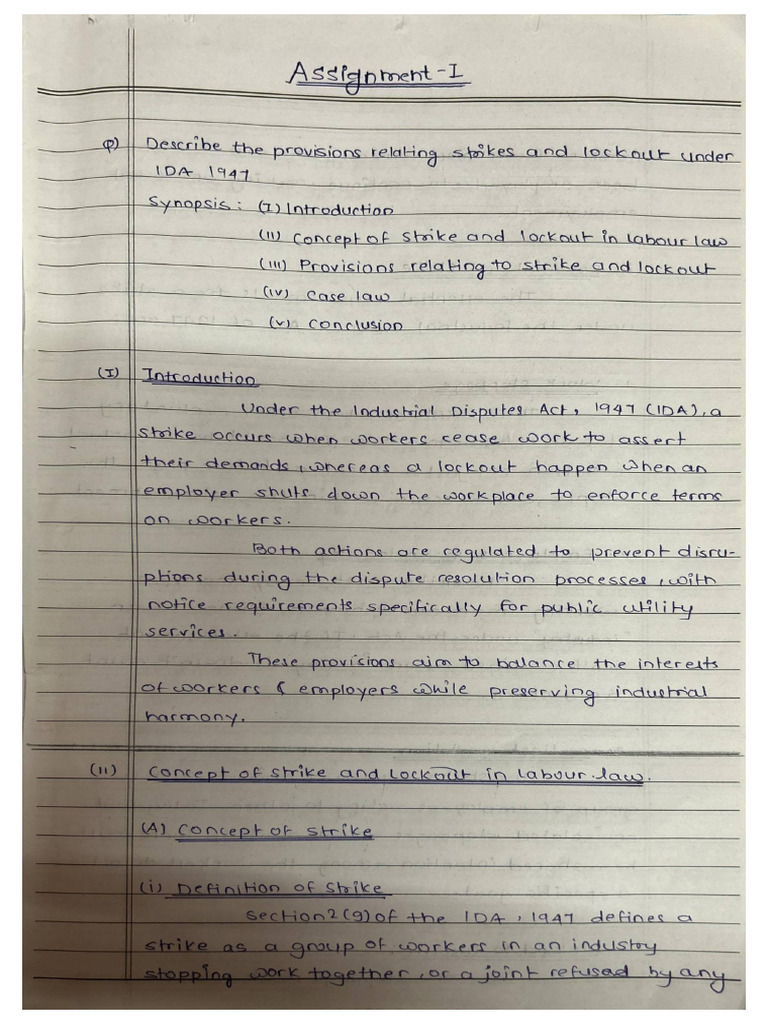 Assignment-I
Q) Describe the provisions relating strikes and lockout under
IDA 1947
Synopsis: (I) Introduction
(II) Concept of strike and lockout in labour law
(III) Provisions relating to strike and lockout
(IV) Case law
(V) Conclusion
(I) Introduction
Under the Industrial Disputes Act, 1947 (IDA), a
strike occurs when workers cease work to assert
their demands, whereas a lockout happen when an
employer shuts down the workplace to enforce terms
on workers.
Both actions are regulated to prevent disru-
ptions during the dispute resolution processes, with
notice requirements specifically for public utility
services.
These provisions aim to balance the interests
of workers & employers while preserving industrial
harmony.
(II) Concept of strike and Lockout in labour law.
(A) Concept of strike
(i) Definition of strike
Section 2(q) of the IDA, 1947 defines a
strike as a group of workers in an industry
stopping work together, or a joint refused by any